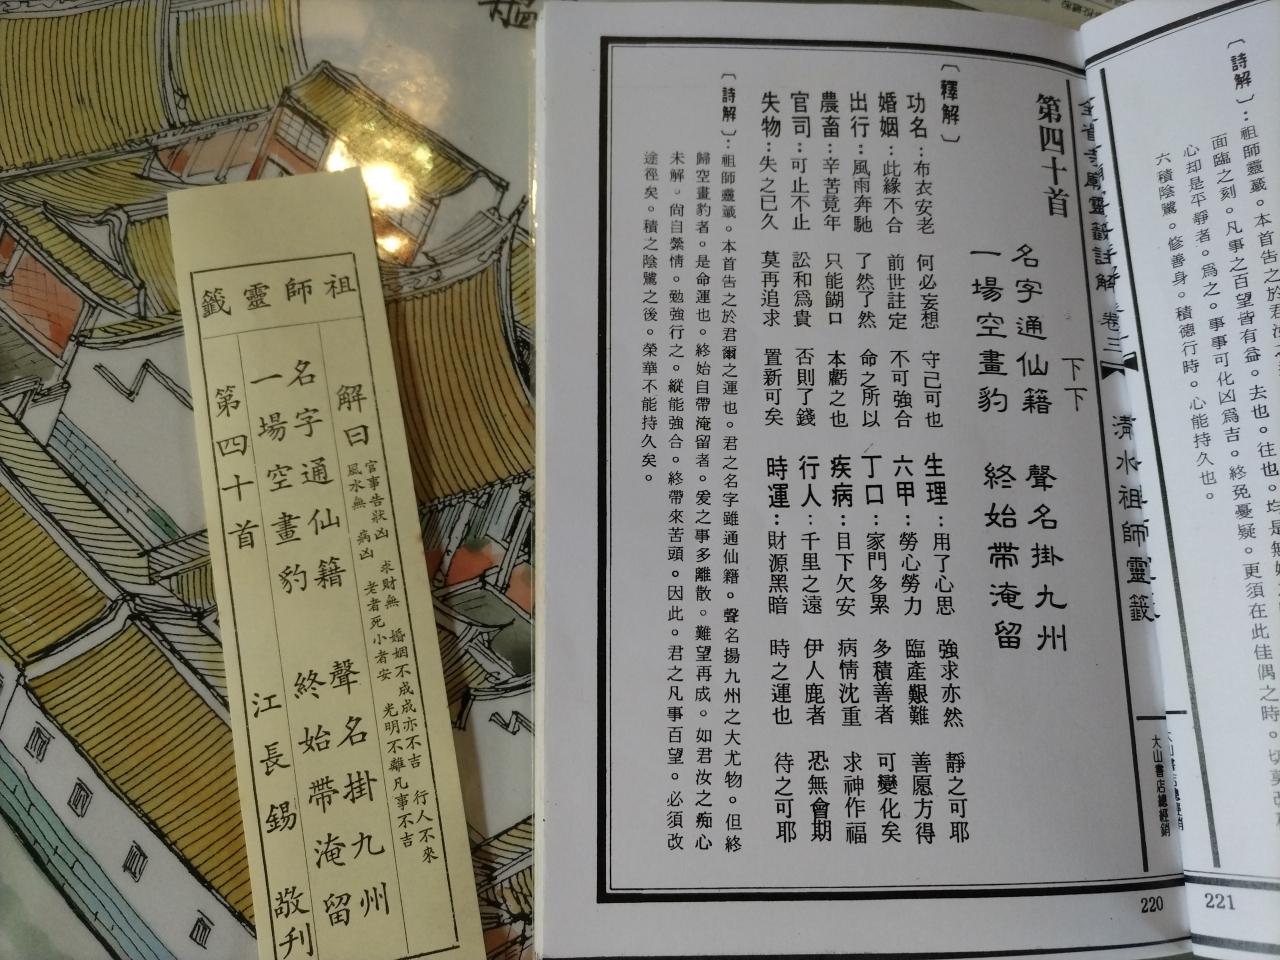 祖師靈籤
解曰
官事告狀凶 求財無 婚姻不成成亦不吉 行人不來
風水無 病凶 老者死小者安 光明不離凡事不吉
名字通仙籍 聲名掛九州
一場空畫豹 終始帶淹留
第四十首 江長錫 敬刊
清水祖師靈籤
大山書店總經銷
第四十首
下下
名字通仙籍 聲名掛九州
一場空畫豹 終始帶淹留
〔釋解〕
功名：布衣安老 何必妄想 守己可也 生理：用了心思 強求亦然 靜之可耶
婚姻：此緣不合 前世註定 不可強合 六甲：勞心勞力 臨產艱難 善愿方得
出行：風雨奔馳 了然了然 命之所以 丁口：家門多累 多積善者 可變化矣
農畜：辛苦竟年 只能餬口 本虧之也 疾病：目下欠安 病情沈重 求神作福
官司：可止不止 訟和為貴 否則了錢 行人：千里之遠 伊人鹿者 恐無會期
失物：失之已久 莫再追求 置新可矣 時運：財源黑暗 時之運也 待之可耶
〔詩解〕：祖師靈籤。本首告之於君爾之運也。君之名字雖通仙籍。聲名揚九州之大尤物。但終
歸空畫豹者。是命運也。終始自帶淹留者。爰之事多離散。難望再成。如君汝之痴心
未解。尚自縈情。勉強行之。縱能強合。終帶來苦頭。因此。君之凡事百望。必須改
途徑矣。積之陰騭之後。榮華不能持久矣。
220
〔詩解〕：祖師靈籤。本首告之於君
面臨之刻。凡事之百望皆有益。去也。往也。均是無
心却是平靜者。為之。事事可化凶為吉。終免憂疑。更須在此佳偶之時。切莫
六積陰騭。修善身。積德行時。心能持久也。
大山書店總經銷
221